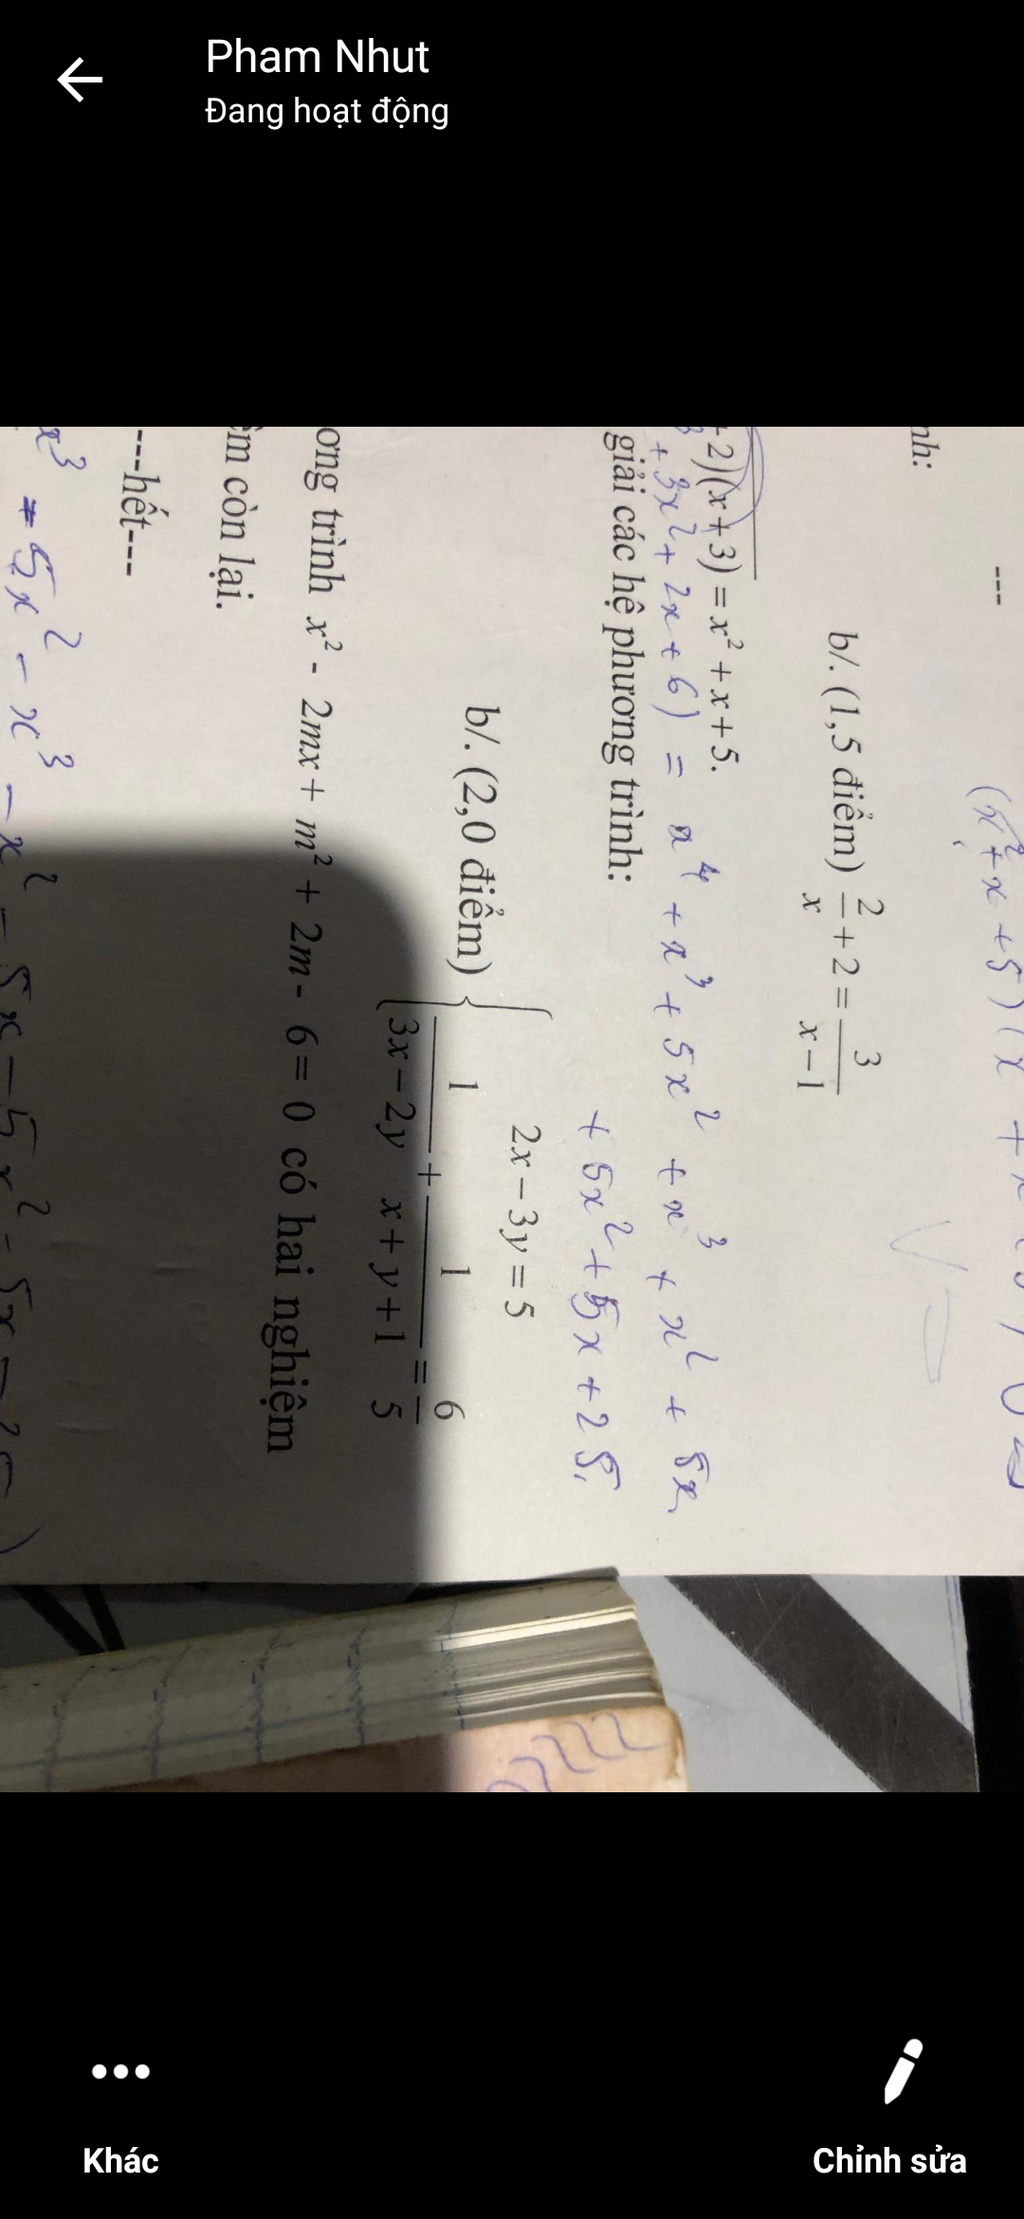 Pham Nhut
Đang hoạt động
---
(x² + x + 5)(x
nh:
b/. (1,5 điểm) 2/x + 2 = 3/(x - 1)
+ 2)(x + 3) = x² + x + 5.
+ 3x² + 2x + 6) = x⁴ + x³ + 5x² + x³ + x² + 5x
+ 5x² + 5x + 25
giải các hệ phương trình:
b/. (2,0 điểm) { 2x - 3y = 5
1/(3x - 2y) + 1/(x + y + 1) = 6/5
ơng trình x² - 2mx + m² + 2m - 6 = 0 có hai nghiệm
ệm còn lại.
---hết---
x³ = 5x² - x³ - x² - 5x - 5x² - 5x - 25)
Khác
Chỉnh sửa